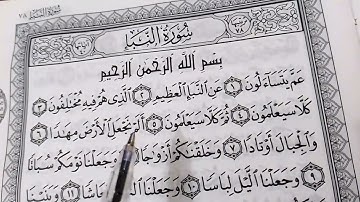 سُورَةُ النَّبَإِ
بِسْمِ اللَّهِ الرَّحْمَٰنِ الرَّحِيمِ
عَمَّ يَتَسَاءَلُونَ ١ عَنِ النَّبَإِ الْعَظِيمِ ٢ الَّذِي هُمْ فِيهِ مُخْتَلِفُونَ ٣
كَلَّا سَيَعْلَمُونَ ٤ ثُمَّ كَلَّا سَيَعْلَمُونَ ٥ أَلَمْ نَجْعَلِ الْأَرْضَ مِهَادًا ٦
وَالْجِبَالَ أَوْتَادًا ٧ وَخَلَقْنَاكُمْ أَزْوَاجًا ٨ وَجَعَلْنَا نَوْمَكُمْ سُبَاتًا
٩ وَجَعَلْنَا اللَّيْلَ لِبَاسًا ١٠ وَجَعَلْنَا مَعَاشًا ١١ وَبَنَيْنَا